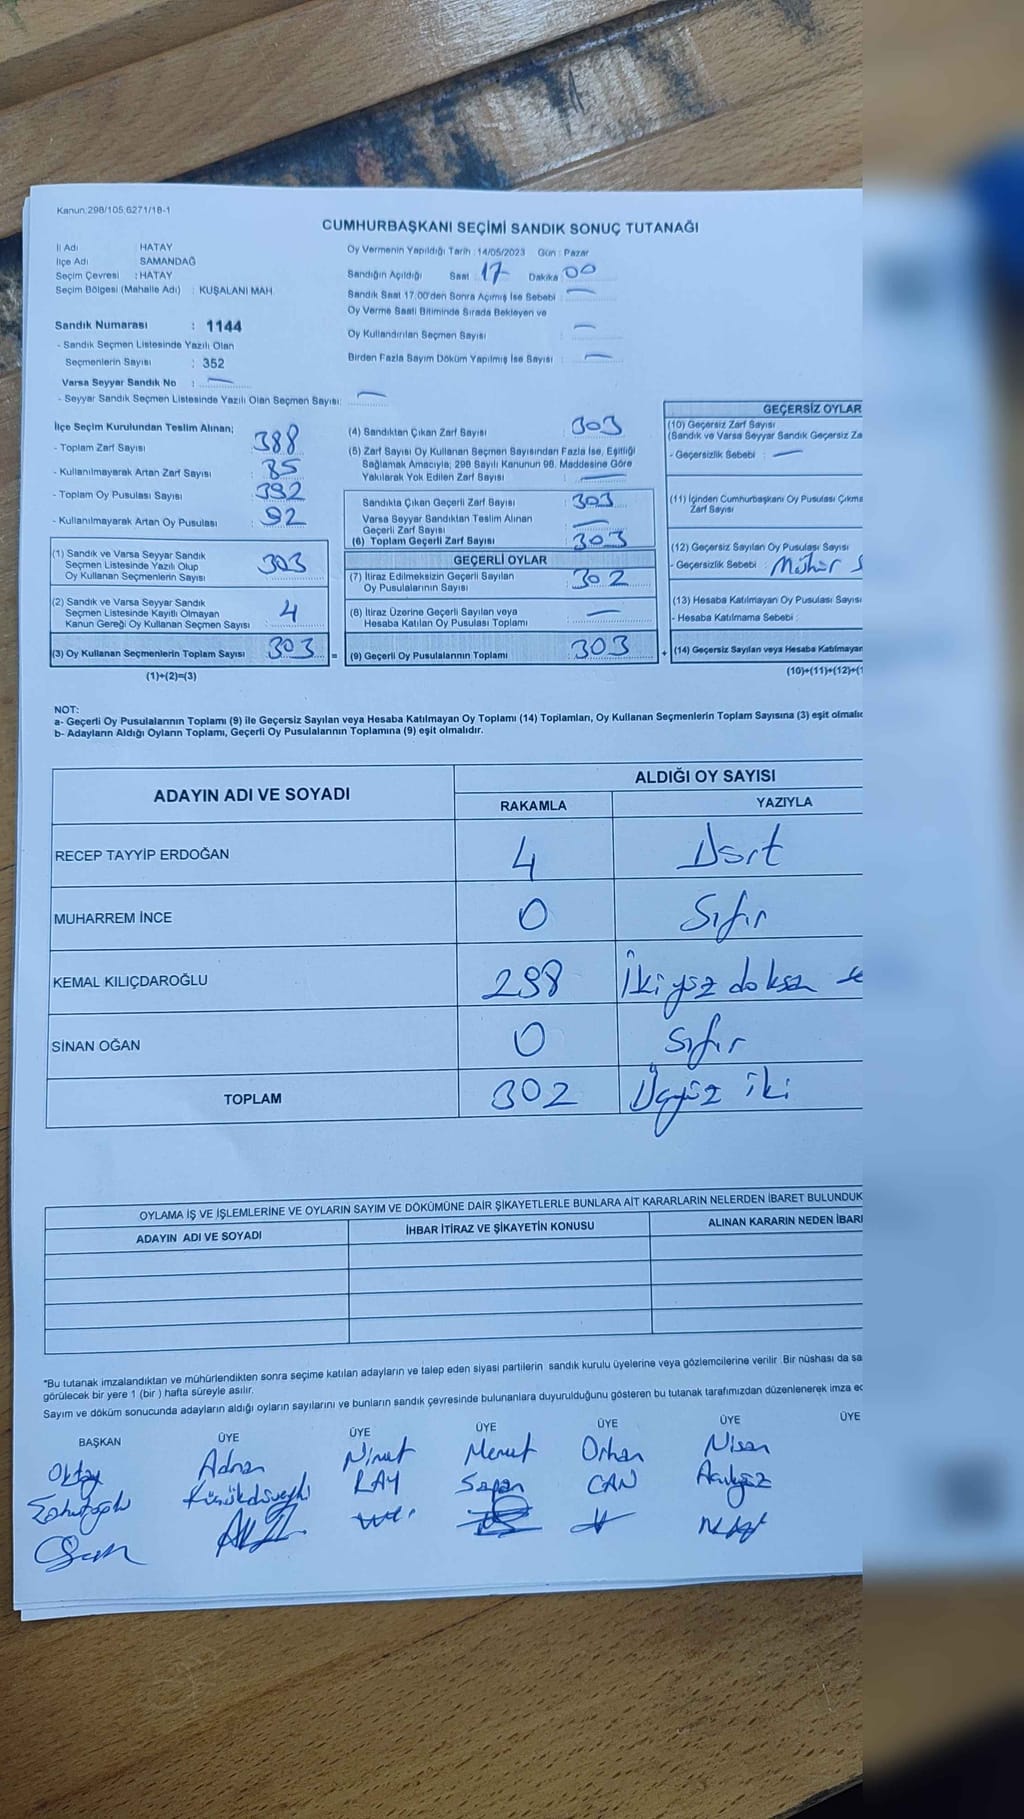 Kanun.298/105,6271/18-1
CUMHURBAŞKANI SEÇİMİ SANDIK SONUÇ TUTANAĞI
İl Adı : HATAY
İlçe Adı : SAMANDAĞ
Seçim Çevresi : HATAY
Seçim Bölgesi (Mahalle Adı) : KUŞALANI MAH.
Oy Vermenin Yapıldığı Tarih : 14/05/2023 Gün : Pazar
Sandığın Açıldığı Saat 17 Dakika 00
Sandık Saat 17:00'den Sonra Açımış İse Sebebi : —
Oy Verme Saati Bitiminde Sırada Bekleyen ve
Oy Kullandırılan Seçmen Sayısı : —
Birden Fazla Sayım Döküm Yapılmış İse Sayısı : —
Sandık Numarası : 1144
- Sandık Seçmen Listesinde Yazılı Olan
Seçmenlerin Sayısı : 352
Varsa Seyyar Sandık No : —
- Seyyar Sandık Seçmen Listesinde Yazılı Olan Seçmen Sayısı: —
İlçe Seçim Kurulundan Teslim Alınan;
- Toplam Zarf Sayısı : 388
- Kullanılmayarak Artan Zarf Sayısı : 85
- Toplam Oy Pusulası Sayısı : 392
- Kullanılmayarak Artan Oy Pusulası : 92
(1) Sandık ve Varsa Seyyar Sandık
Seçmen Listesinde Yazılı Olup
Oy Kullanan Seçmenlerin Sayısı : 303
(2) Sandık ve Varsa Seyyar Sandık
Seçmen Listesinde Kayıtlı Olmayan
Kanun Gereği Oy Kullanan Seçmen Sayısı : 4
(3) Oy Kullanan Seçmenlerin Toplam Sayısı : 303 =
(1)+(2)=(3)
(4) Sandıktan Çıkan Zarf Sayısı : 303
(5) Zarf Sayısı Oy Kullanan Seçmen Sayısından Fazla İse, Eşitliği
Sağlamak Amacıyla; 298 Sayılı Kanunun 98. Maddesine Göre
Yakılarak Yok Edilen Zarf Sayısı : —
Sandıkta Çıkan Geçerli Zarf Sayısı : 303
Varsa Seyyar Sandıktan Teslim Alınan
Geçerli Zarf Sayısı : —
(6) Toplam Geçerli Zarf Sayısı : 303
GEÇERLİ OYLAR
(7) İtiraz Edilmeksizin Geçerli Sayılan
Oy Pusulalarının Sayısı : 302
(8) İtiraz Üzerine Geçerli Sayılan veya
Hesaba Katılan Oy Pusulası Toplamı : —
(9) Geçerli Oy Pusulalarının Toplamı : 303 +
GEÇERSİZ OYLAR
(10) Geçersiz Zarf Sayısı
(Sandık ve Varsa Seyyar Sandık Geçersiz Za
- Geçersizlik Sebebi : —
(11) İçinden Cumhurbaşkanı Oy Pusulası Çıkma
Zarf Sayısı
(12) Geçersiz Sayılan Oy Pusulası Sayısı
- Geçersizlik Sebebi : Mühür
(13) Hesaba Katılmayan Oy Pusulası Sayısı
- Hesaba Katılmama Sebebi :
(14) Geçersiz Sayılan veya Hesaba Katılmayan
(10)+(11)+(12)+(1
NOT:
a- Geçerli Oy Pusulalarının Toplamı (9) ile Geçersiz Sayılan veya Hesaba Katılmayan Oy Toplamı (14) Toplamları, Oy Kullanan Seçmenlerin Toplam Sayısına (3) eşit olmalıd
b- Adayların Aldığı Oyların Toplamı, Geçerli Oy Pusulalarının Toplamına (9) eşit olmalıdır.
ADAYIN ADI VE SOYADI
ALDIĞI OY SAYISI
RAKAMLA YAZIYLA
RECEP TAYYİP ERDOĞAN 4 Dört
MUHARREM İNCE 0 Sıfır
KEMAL KILIÇDAROĞLU 298 İkiyüz doksan se
SİNAN OĞAN 0 Sıfır
TOPLAM 302 Üçyüz iki
OYLAMA İŞ VE İŞLEMLERİNE VE OYLARIN SAYIM VE DÖKÜMÜNE DAİR ŞİKAYETLERLE BUNLARA AİT KARARLARIN NELERDEN İBARET BULUNDUK
ADAYIN ADI VE SOYADI İHBAR İTİRAZ VE ŞİKAYETİN KONUSU ALINAN KARARIN NEDEN İBAR
"Bu tutanak imzalandıktan ve mühürlendikten sonra seçime katılan adayların ve talep eden siyasi partilerin sandık kurulu üyelerine veya gözlemcilerine verilir. Bir nüshası da sa
görülecek bir yere 1 (bir ) hafta süreyle asılır.
Sayım ve döküm sonucunda adayların aldığı oyların sayılarını ve bunların sandık çevresinde bulunanlara duyurulduğunu gösteren bu tutanak tarafımızdan düzenlenerek imza ed
BAŞKAN ÜYE ÜYE ÜYE ÜYE ÜYE ÜYE
Oktay Adnan Nimet Mesut Orhan Nisan
RAY Sapan CAN Açıkgöz